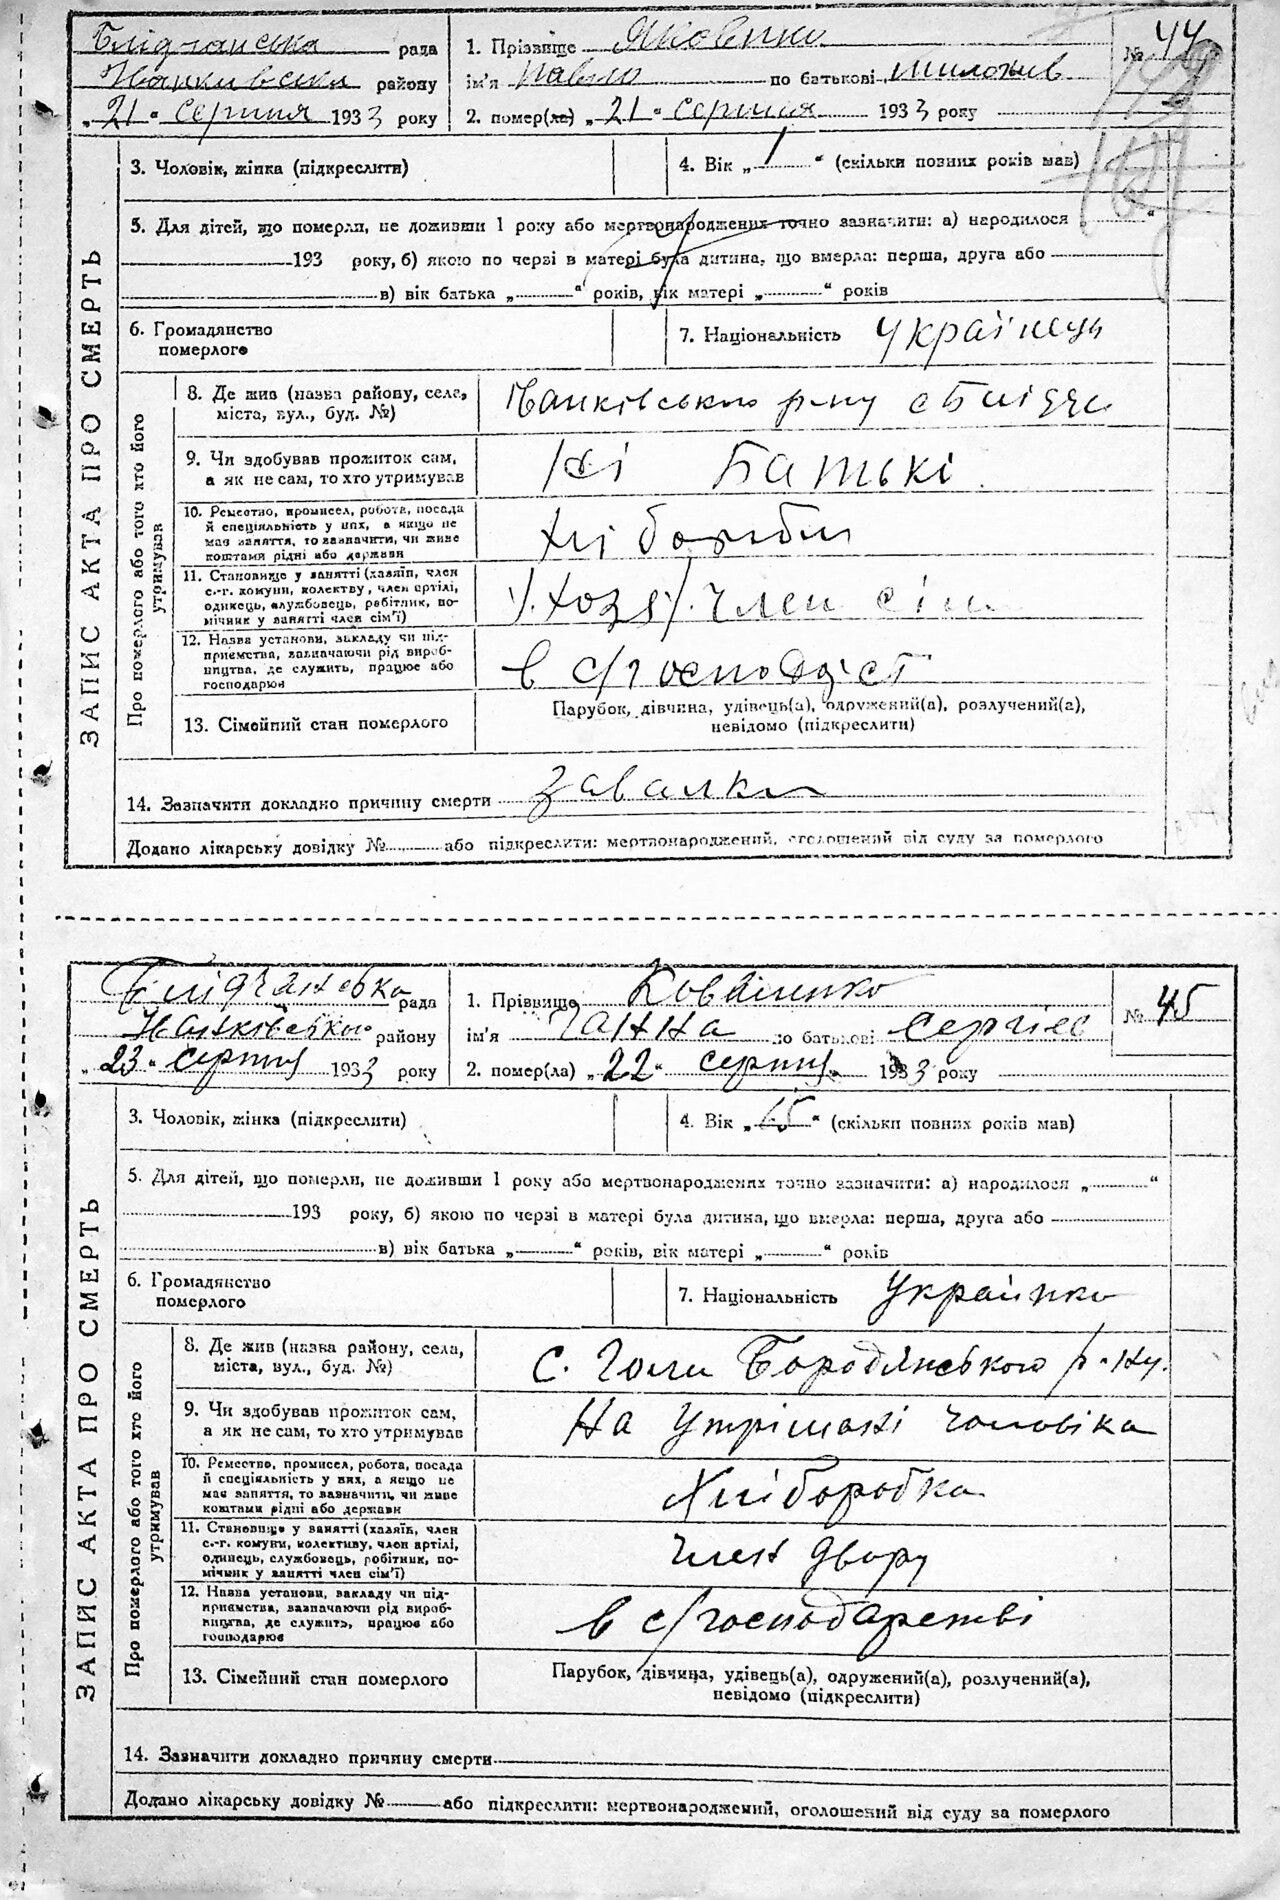 Блідчанська рада
Іванківська району
„21“ серпня 1933 року
1. Прізвище Яковенко
ім'я Павло по батькові
2. помер(ла) „21“ серпня 1933 року
№ 44
ЗАПИС АКТА ПРО СМЕРТЬ
3. Чоловік, жінка (підкреслити)
4. Вік „1“ (скільки повних років мав)
5. Для дітей, що померли, не доживши 1 року або мертвонароджених точно зазначити: а) народилося „ “
193 року, б) якою по черзі в матері була дитина, що вмерла: перша, друга або
в) вік батька „ “ років, вік матері „ “ років
6. Громадянство
померлого
7. Національність Українець
Про померлого або того хто його
утримував
8. Де жив (назва району, села,
міста, вул., буд. №)
Іванківського р-ну с Блідча
9. Чи здобував прожиток сам,
а як не сам, то хто утримував
Ні Батькі
10. Ремество, промисел, робота, посада
й спеціяльність у них, а якщо не
мав заняття, то зазначити, чи живе
коштами рідні або держави
11. Становище у занятті (хазяїн, член
с.-г. комуни, колективу, член артілі,
одинець, службовець, робітник, по-
мічник у занятті член сім'ї)
член сім
12. Назва установи, закладу чи під-
приємства, зазначаючи рід вироб-
ництва, де служить, працює або
господарює
в с/господаст
13. Сімейний стан померлого
Парубок, дівчина, удівець(а), одружений(а), розлучений(а),
невідомо (підкреслити)
14. Зазначити докладно причину смерти
Додано лікарську довідку № або підкреслити: мертвонароджений, оголошений від суду за померлого
Блідчанська рада
Іванківського району
„23“ серпня 1933 року
1. Прізвище Коваленко
ім'я Ганна по батькові Сергієв
2. помер(ла) „22“ серпня 1933 року
№ 45
ЗАПИС АКТА ПРО СМЕРТЬ
3. Чоловік, жінка (підкреслити)
4. Вік „65“ (скільки повних років мав)
5. Для дітей, що померли, не доживши 1 року або мертвонароджених точно зазначити: а) народилося „ “
193 року, б) якою по черзі в матері була дитина, що вмерла: перша, друга або
в) вік батька „ “ років, вік матері „ “ років
6. Громадянство
померлого
7. Національність Українка
Про померлого або того хто його
утримував
8. Де жив (назва району, села,
міста, вул., буд. №)
с. Бородянського р-ну.
9. Чи здобував прожиток сам,
а як не сам, то хто утримував
На утрімані чоловіка
10. Ремество, промисел, робота, посада
й спеціяльність у них, а якщо не
має заняття, то зазначити, чи живе
коштами рідні або держави
Хліборобка
11. Становище у занятті (хазяїн, член
с.-г. комуни, колективу, член артілі,
одинець, службовець, робітник, по-
мічник у занятті член сім'ї)
член двору
12. Назва установи, закладу чи під-
приємства, зазначаючи рід вироб-
ництва, де служить, працює або
господарює
в с/господарстві
13. Сімейний стан померлого
Парубок, дівчина, удівець(а), одружений(а), розлучений(а),
невідомо (підкреслити)
14. Зазначити докладно причину смерти
Додано лікарську довідку № або підкреслити: мертвонароджений, оголошений від суду за померлого